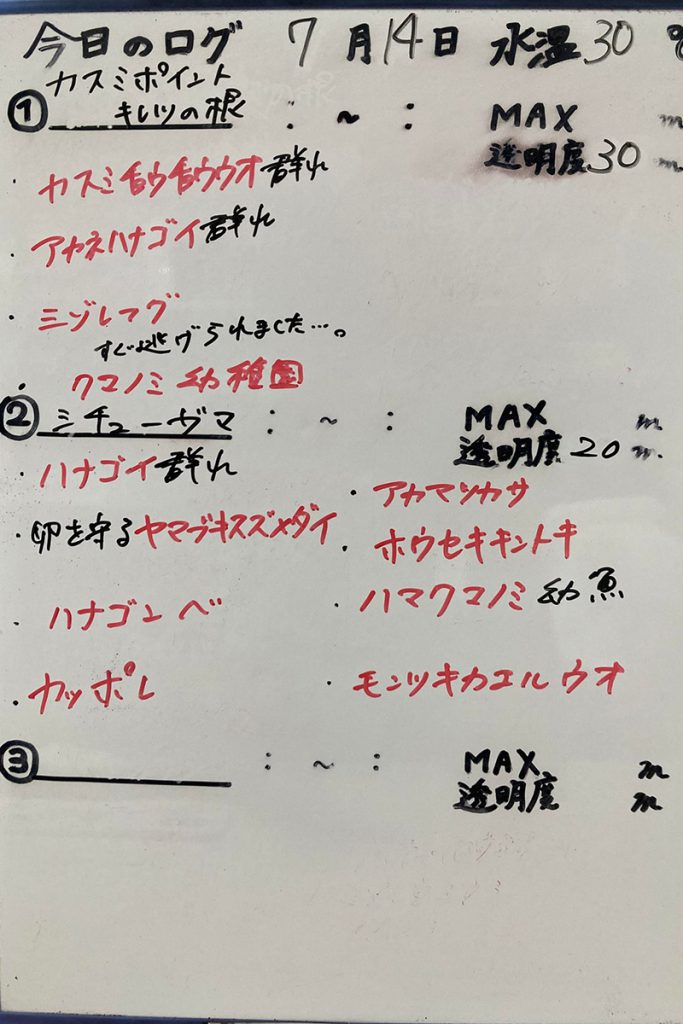 今日のログ 7月14日 水温30℃
カスミポイント
① キレツの根 : ~ : MAX m
透明度30m
・カスミチョウチョウウオ群れ
・アカネハナゴイ群れ
・ミゾレフグ
すぐ逃げられました…。
・クマノミ幼稚園
② ミチューグマ : ~ : MAX m
透明度20m
ハナゴイ群れ
・卵を守るヤマブキスズメダイ
・ハナゴンベ
・カッポレ
・アカマツカサ
・ホウセキキントキ
・ハマクマノミ幼魚
・モンツキカエルウオ
③ : ~ : MAX m
透明度 m